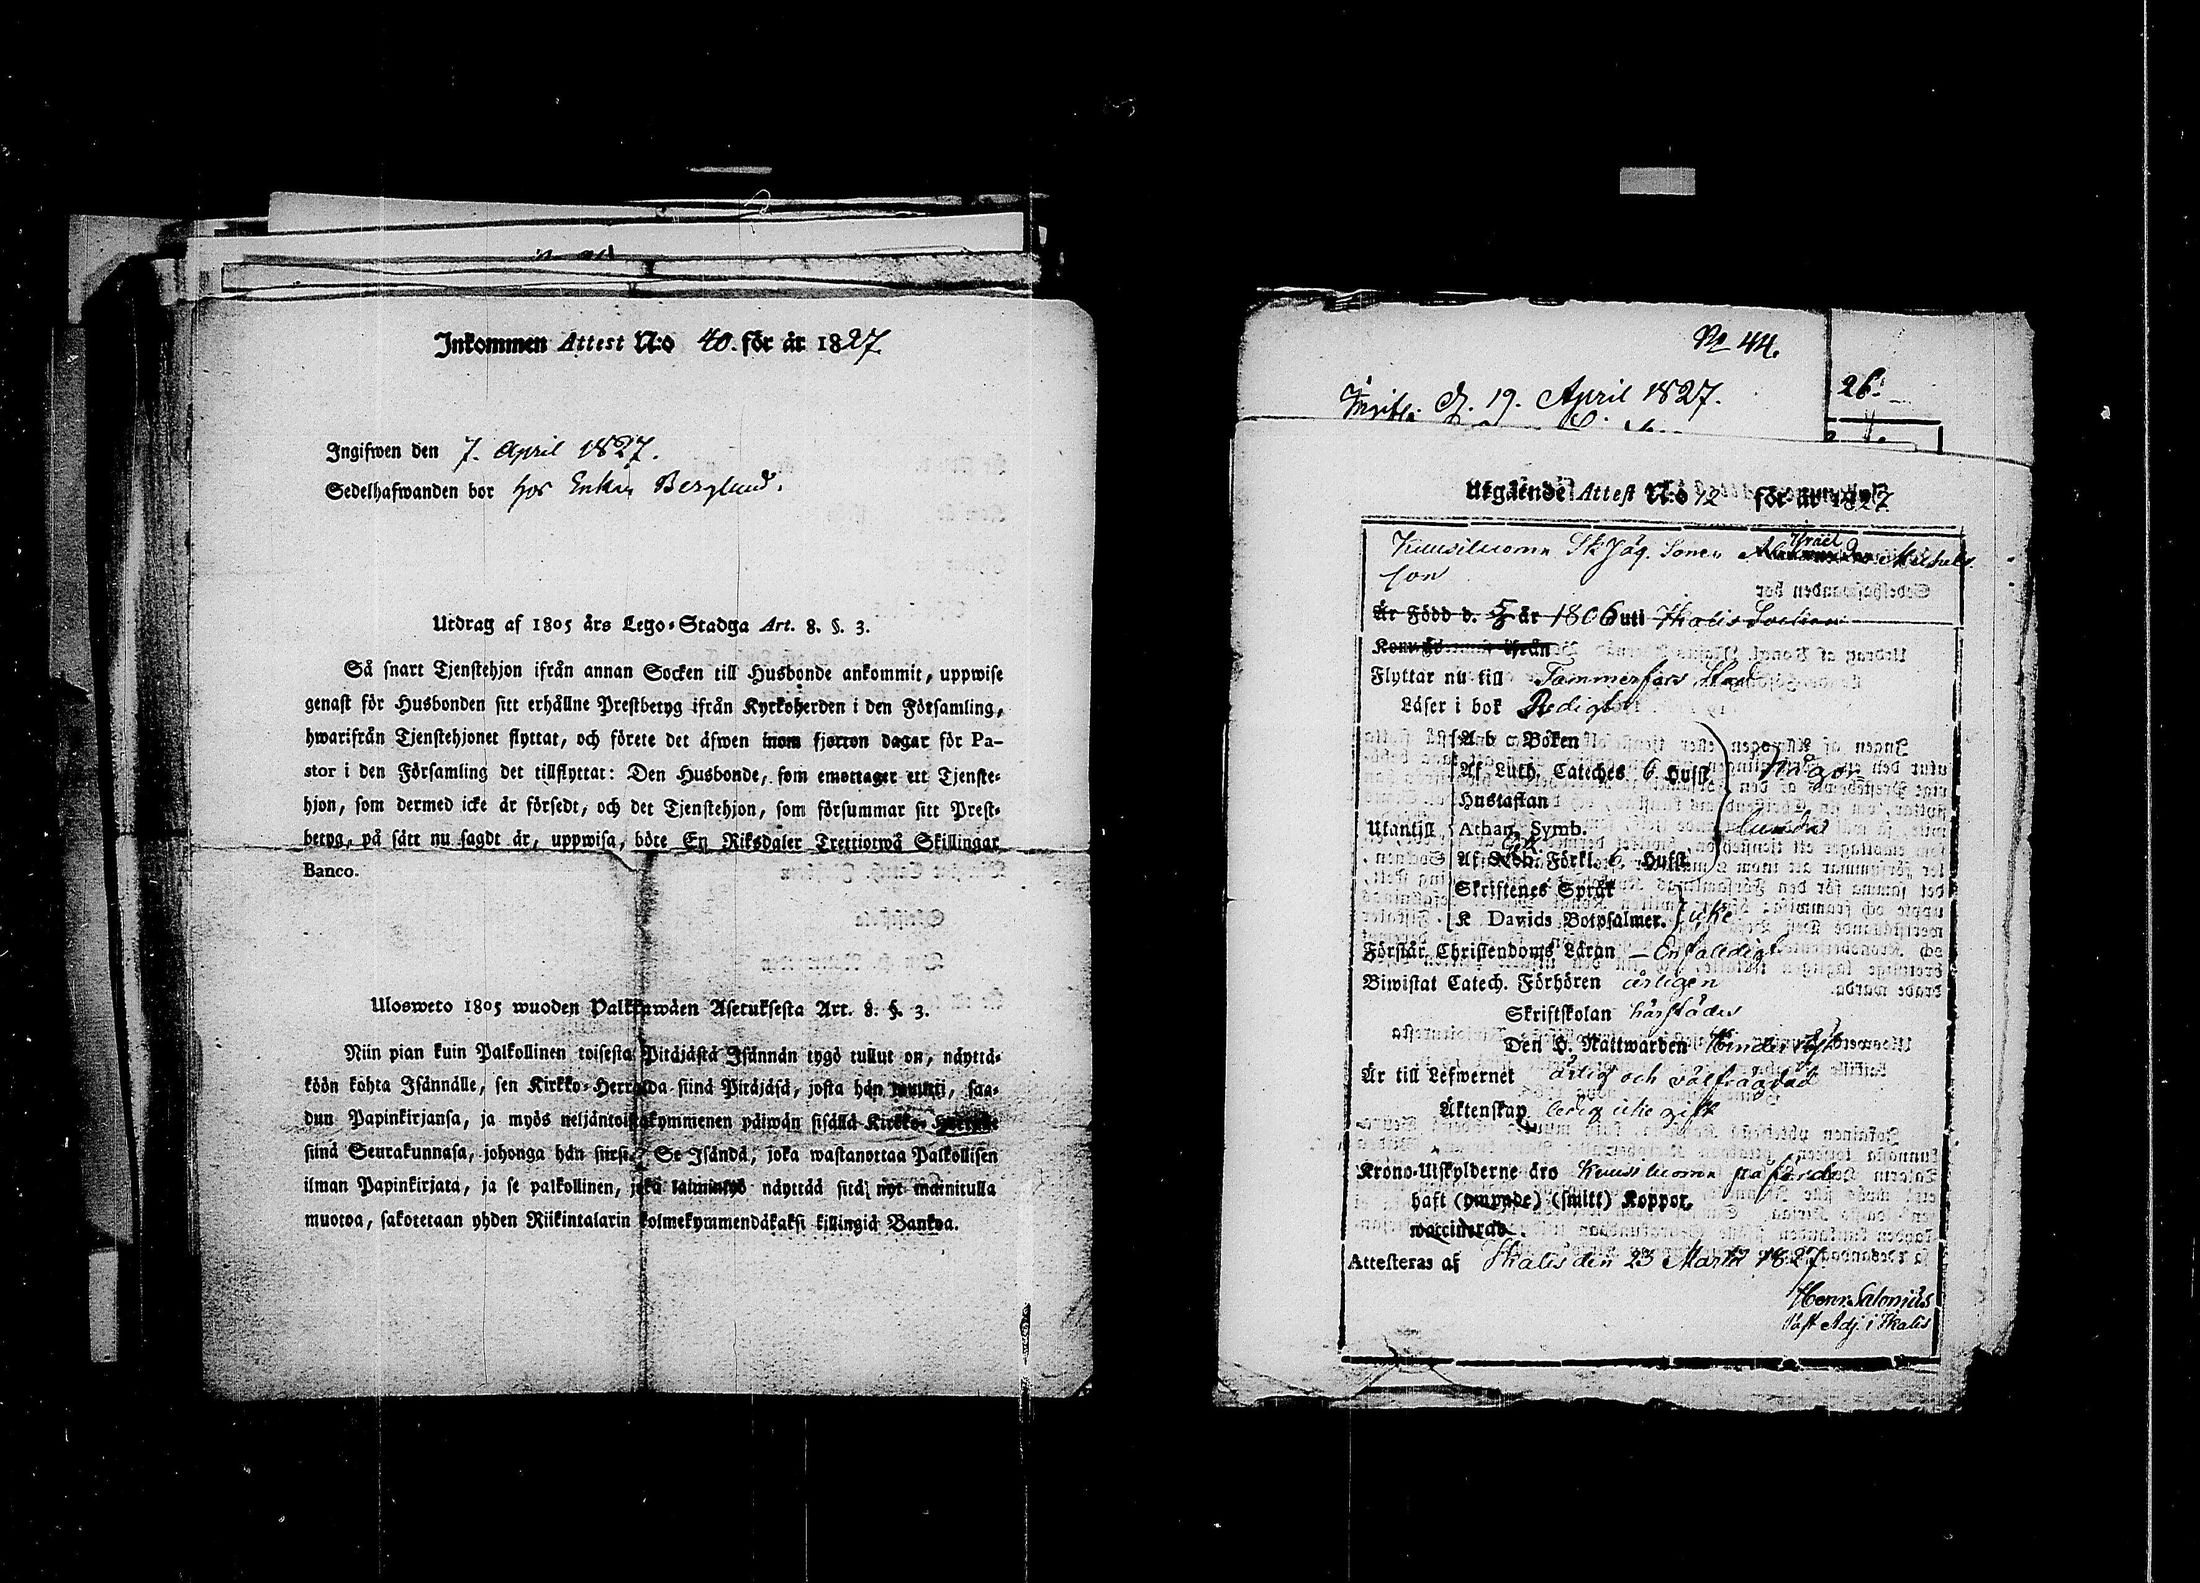 Inkommen Attest N:o 40. för år 1827.
Ingifwen den 7. April 1827.
Sedelhafwanden bor hos Enkan Berglund.
Utdrag af 1805 års Lego-Stadga Art. 8. §. 3.
Så snart Tjenstehjon ifrån annan Socken till Husbonde ankommit, uppwise
genast för Husbonden sitt erhållne Prestbetyg ifrån Kyrkoherden i den Församling,
hwarifrån Tjenstehjonet flyttat, och förete det äfwen inom fjorton dagar för Pa-
stor i den Församling det tillflyttat: Den Husbonde, som emottager ett Tjenste-
hjon, som dermed icke är försedt, och det Tjenstehjon, som försummar sitt Prest-
betyg, på sätt nu sagdt är, uppwisa, böte En Riksdaler Trettiotwå Skillingar
Banco.
Ulosweto 1805 wuoden Palkkawäen Asetuksesta Art. 8. §. 3.
Niin pian kuin Palkollinen toisesta Pitäjästä Isännän tygö tullut on, näyttä-
köön kohta Isännälle, sen Kirkko-Herralda siinä Pitäjäsä, josta hän muutti, saa-
dun Papinkirjansa, ja myös neljäntoistakymmenen päiwän sisällä Kirkko-Herralle
siinä Seurakunnasa, johonga hän siirsi. Se Isändä, joka wastanottaa Palkollisen
ilman Papinkirjata, ja se palkollinen, joka laiminlyö näyttää sitä, nyt mainitulla
muotoa, sakotetaan yhden Riikintalarin kolmekymmendäkaksi killingiä Bankoa.
No 44.
d. 19. April 1827.
26.
Utgående Attest N:o 42 för år 1827
Israel
Kuusiluoma Sk Jäg. Sonen Michels
son
Är Född d. 5/3 år 1806 uti Ikalis Socken
Kommen ifrån
Flyttar nu till Tammerfors Stad
Läser i bok
Ab c Boken
Af Luth. Cateches 6 Hufst. någon
Hustaflan
Utantill Athan. Symb. lunda
Af Förkl. 6. Hufst.
Skriftenes Språk
K Davids Botpsalmer. icke
Förstår Christendoms Läran — Enfaldigt
Biwistat Catech. Förhören årligen
Skriftskolan härstädes
Den H. Nattwarden
Är till Lefwernet ärlig och välfrägdad
Äktenskap ledig icke gift
Krono-Utskylderne äro Kuusiluoma påförde
haft (ympade) (smitt) Koppor.
waccinerad.
Attesteras af Ikalis den 23 Martii 1827
Henr. Salonius
Past Adj. i Ikalis